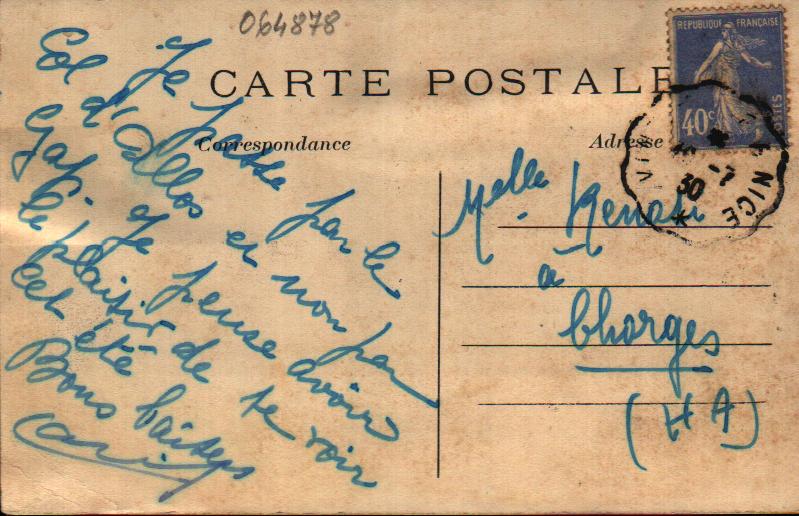 064878
CARTE POSTALE
Correspondance
Adresse
REPUBLIQUE FRANÇAISE
40c
POSTES
NICE
-7
30
Je passe par le
Col d'Allos et non par
Gap. Je pense avoir
le plaisir de te voir
cet été
Bons baisers
Melle
à
Chorges
(HA)